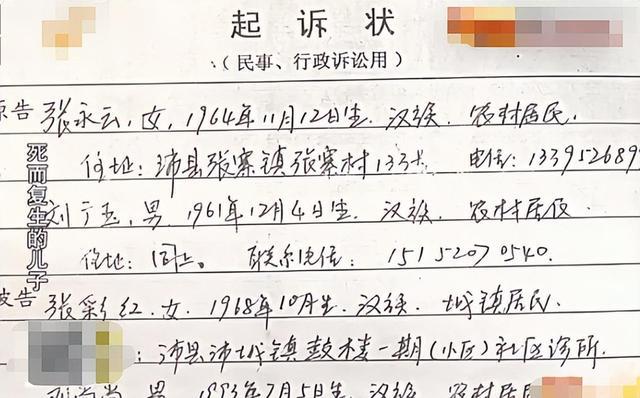 起诉状
(民事、行政诉讼用)
原告 张永云，女，1964年11月12日生．汉族．农村居民．
住址：沛县张寨镇张寨村133号 电话：133952689
刘广玉，男．1961年12月4日生．汉族．农村居民
住地：同上。 联系电话：15152070540.
被告 张彩红．女．1968年10月生．汉族．城镇居民．
：沛县沛城镇鼓楼一期(小区)社区诊所．
男 1993年7月5日生．汉族 农村居民
死而复生的儿子